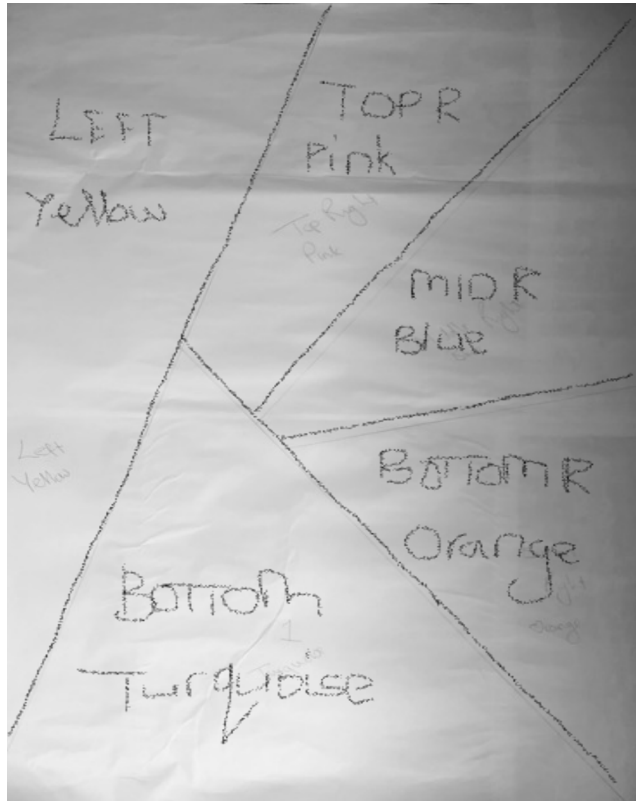 LEFT
Yellow
TOP R
Pink
Top Right
Pink
MID R
Blue
Left
Yellow
BOTTOM R
Orange
BOTTOM
1
Turquoise
orange